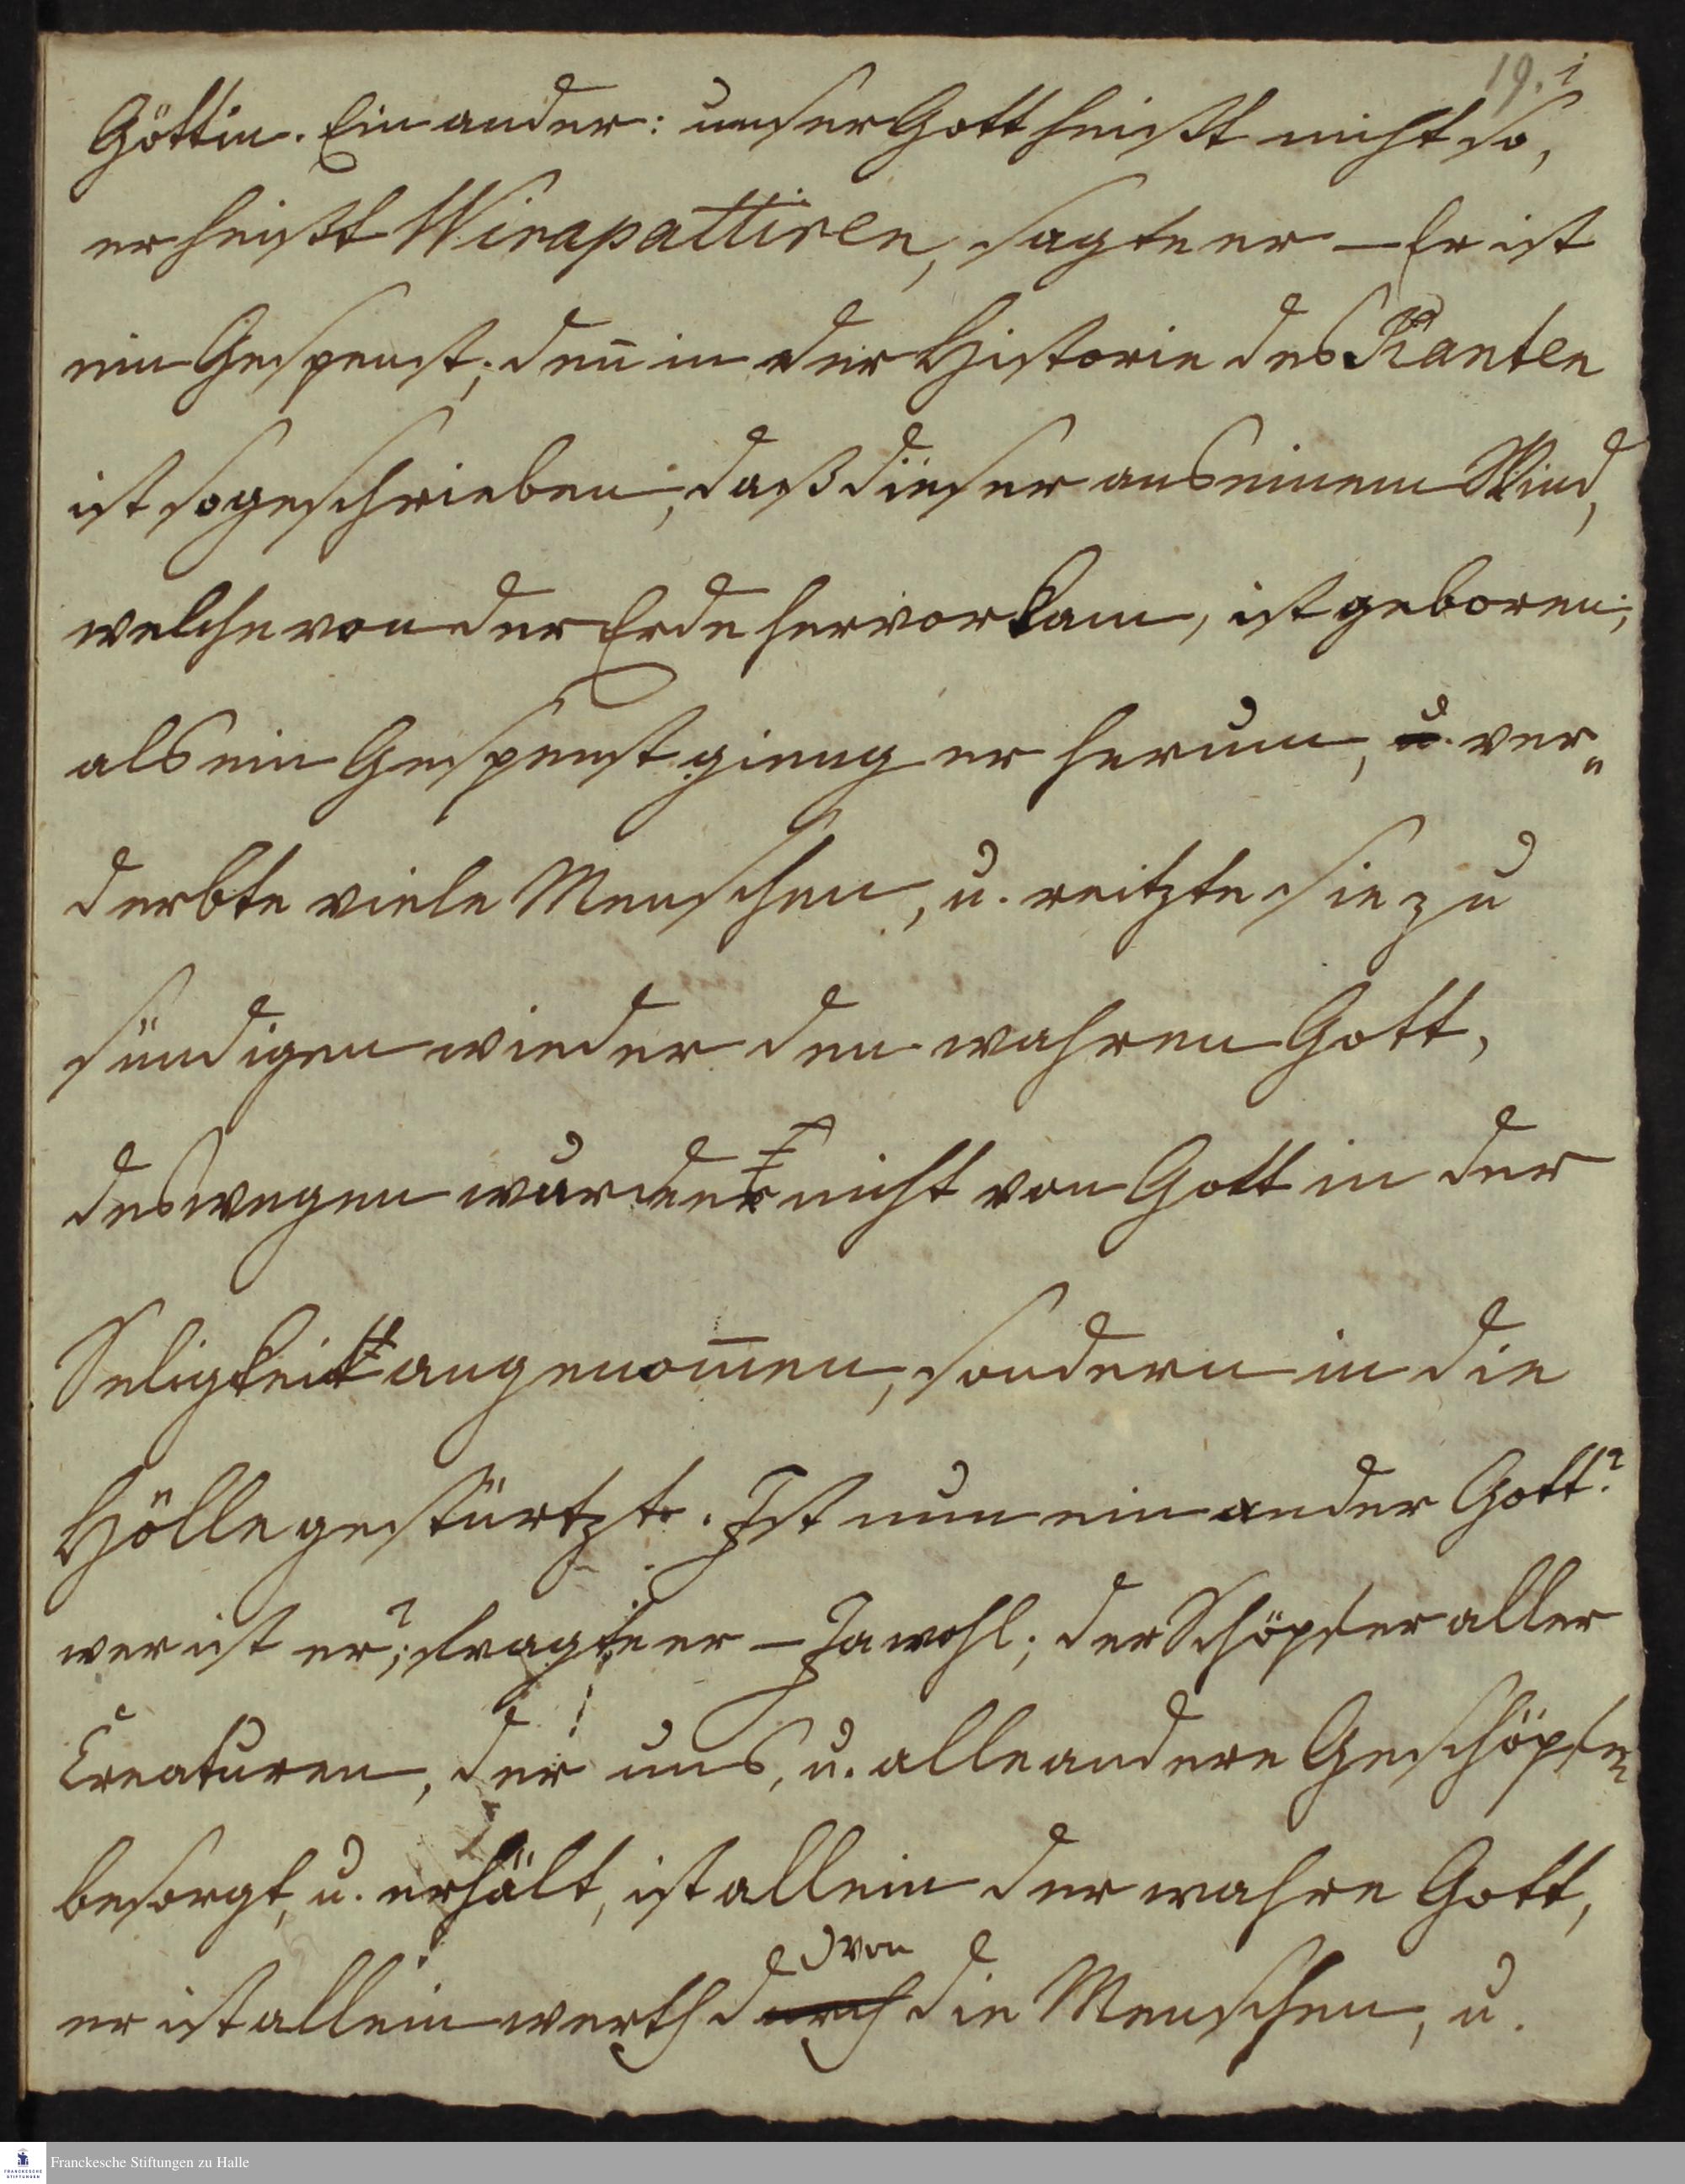 19.
Göttin. Ein ander: unser Gott heißt nicht so,
er heißt Wirapattiren, sagte er — Er ist
ein Gespenst; den̅ in der Historie des Kanten
ist so geschrieben, daß dieser aus einem Wind,
welche von der Erde hervorkam, ist geboren;
als ein Gespenst gieng er herum, u. ver„
derbte viele Menschen, u. reitzte sie zu
sündigen wieder den wahren Gott,
deswegen wurde er nicht von Gott in der
Seligkeit angenom̅en, sondern in die
Hölle gestürtzt. Ist nun ein ander Gott?
wer ist er?, fragte er — Ja wohl; der Schöpfer aller
Creaturen, der uns, u. alle andere Geschöpfe
besorgt, u. erhält, ist allein der wahre Gott,
von
er ist allein werth durch die Menschen, u.
Franckesche Stiftungen zu Halle